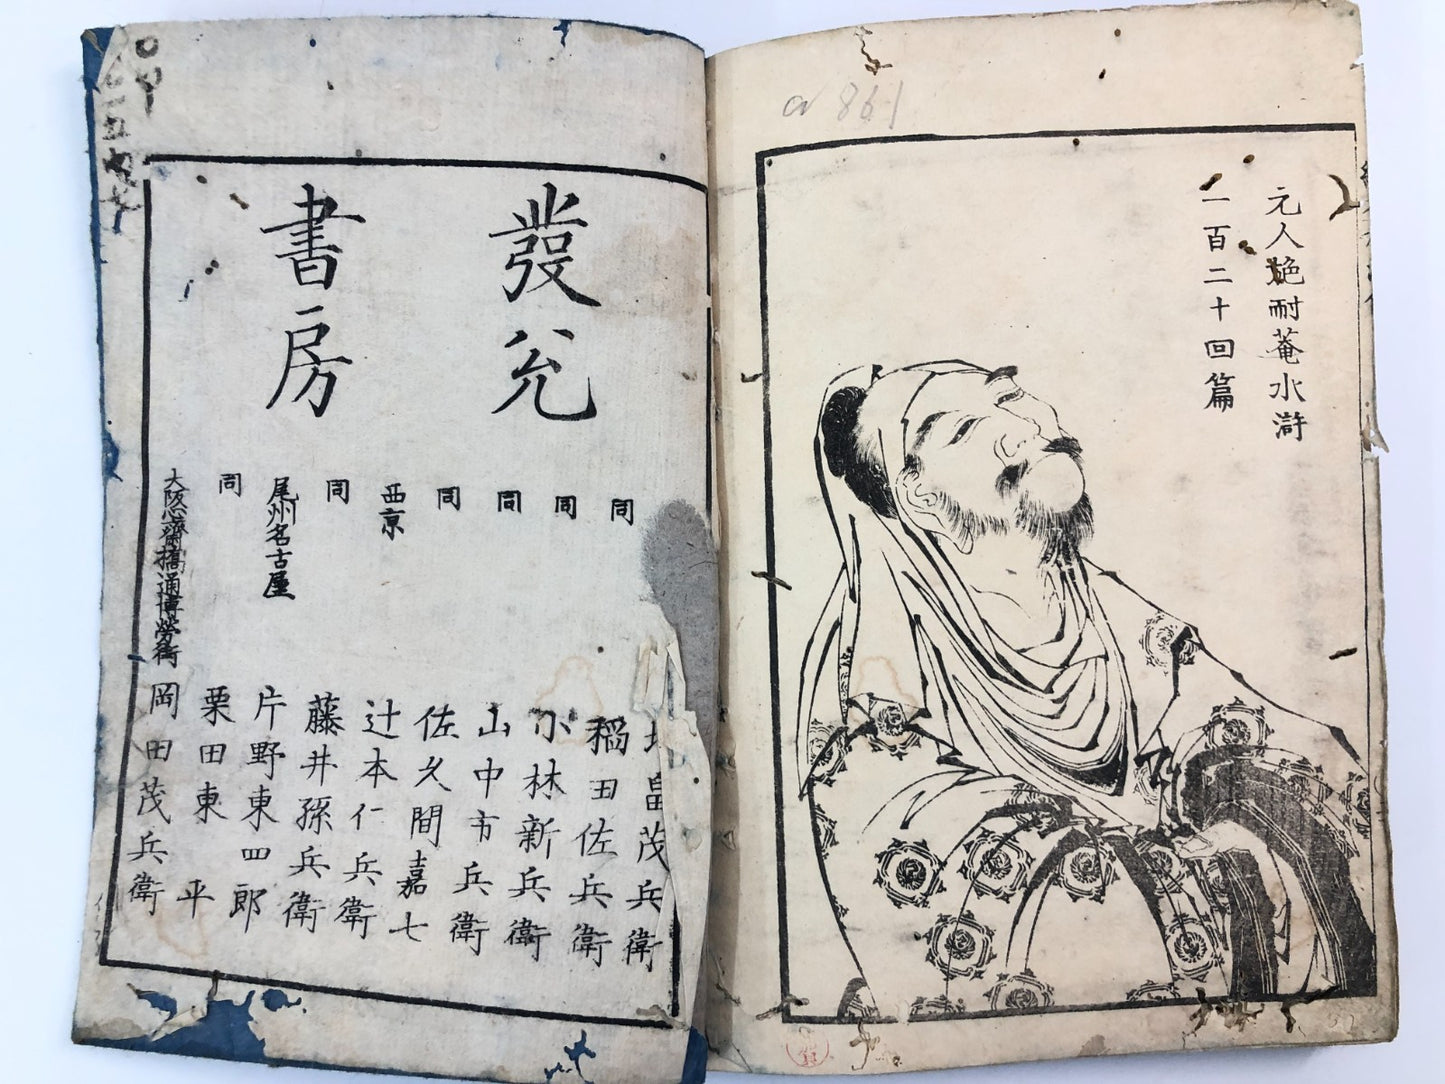 元人施耐菴水滸
一百二十回篇
a 861
發兌
書房
同
畠茂兵衛
同
稲田佐兵衛
同
小林新兵衛
同
山中市兵衛
同
佐久間嘉七
西京
辻本仁兵衛
同
藤井孫兵衛
尾州名古屋
片野東四郎
同
栗田東平
大阪心齋橋通博勞街
岡田茂兵衛